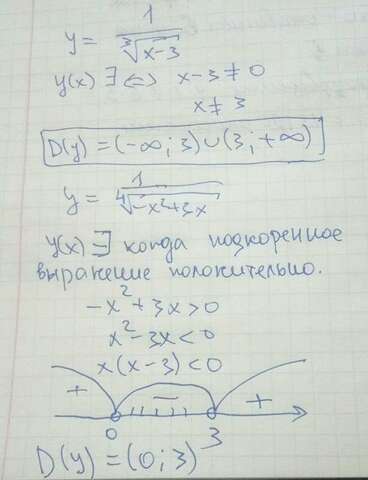 y = 1/∛(x-3)
y(x) ∃ ⇔ x-3 ≠ 0
x ≠ 3
D(y) = (-∞; 3) ∪ (3; +∞)
y = 1/∜(-x²+3x)
y(x) ∃ когда подкоренное
выражение положительно.
-x² + 3x > 0
x² - 3x < 0
x(x-3) < 0
+ - +
0 3
D(y) = (0; 3)